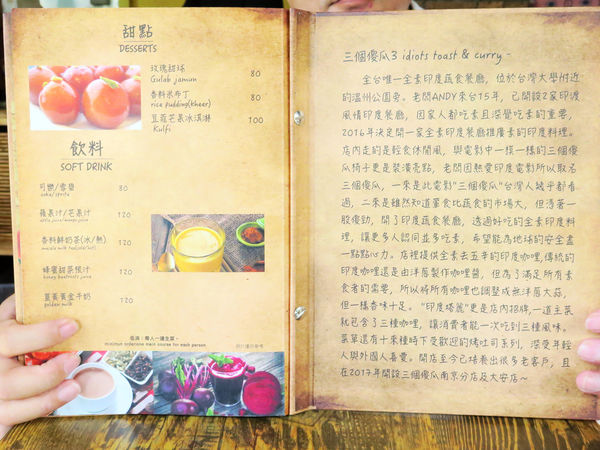 甜點
DESSERTS
玫瑰甜球 80
Gulab jamun
香料米布丁 80
rice pudding(kheer)
豆蔻芒果冰淇淋 100
Kulfi
飲料
SOFT DRINK
可樂/雪碧 80
coke/sprite
蘋果汁/芒果汁 120
apple juice/mango juice
香料鮮奶茶(冰/熱) 120
masala milk tea(ice/hot)
蜂蜜甜菜根汁 120
honey beetroots juice
薑黃黃金牛奶 120
golden milk
低消：每人一道主菜。
minimun order:one main course for each person
三個傻瓜3 idiots toast & curry -
全台唯一全素印度蔬食餐廳，位於台灣大學附近
的溫州公園旁。老闆ANDY來台15年，已開設2家印渡
風情印度餐廳，因家人都吃素且深覺吃素的重要，
2016年決定開一家全素印度餐廳推廣素的印度料理。
店內走的是輕食休閒風，與電影中一模一樣的三個傻
瓜椅子更是裝潢亮點，老闆因熱愛印度電影所以取名
三個傻瓜，一來是此電影"三個傻瓜"台灣人幾乎都看
過，二來是雖然知道葷食比蔬食的市場大，但憑著一
股傻勁，開了印度蔬食餐廳，透過好吃的全素印度料
理，讓更多人認同並多吃素，希望能為地球的安全盡
一點點心力。店裡提供全素去五辛的印度咖哩，傳統的
印度咖哩還是由洋蔥製作咖哩醬，但為了滿足所有素
食者的需要，所以將所有咖哩也調整成無洋蔥大蒜，
但一樣香味十足。"印度塔麗"更是店內招牌，一道主菜
就包含了三種咖哩，讓消費者能一次吃到三種風味。
菜單還有十來種時下受歡迎的烤吐司系列，深受年輕
人與外國人喜愛。開店至今已培養出很多老客戶，且
在2017年開設三個傻瓜南京分店及大安店~